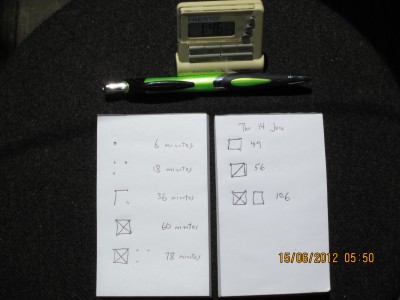 6 minutes
18 minutes
36 minutes
60 minutes
78 minutes
Thu 14 June
49
56
106
15/06/2012 05:50